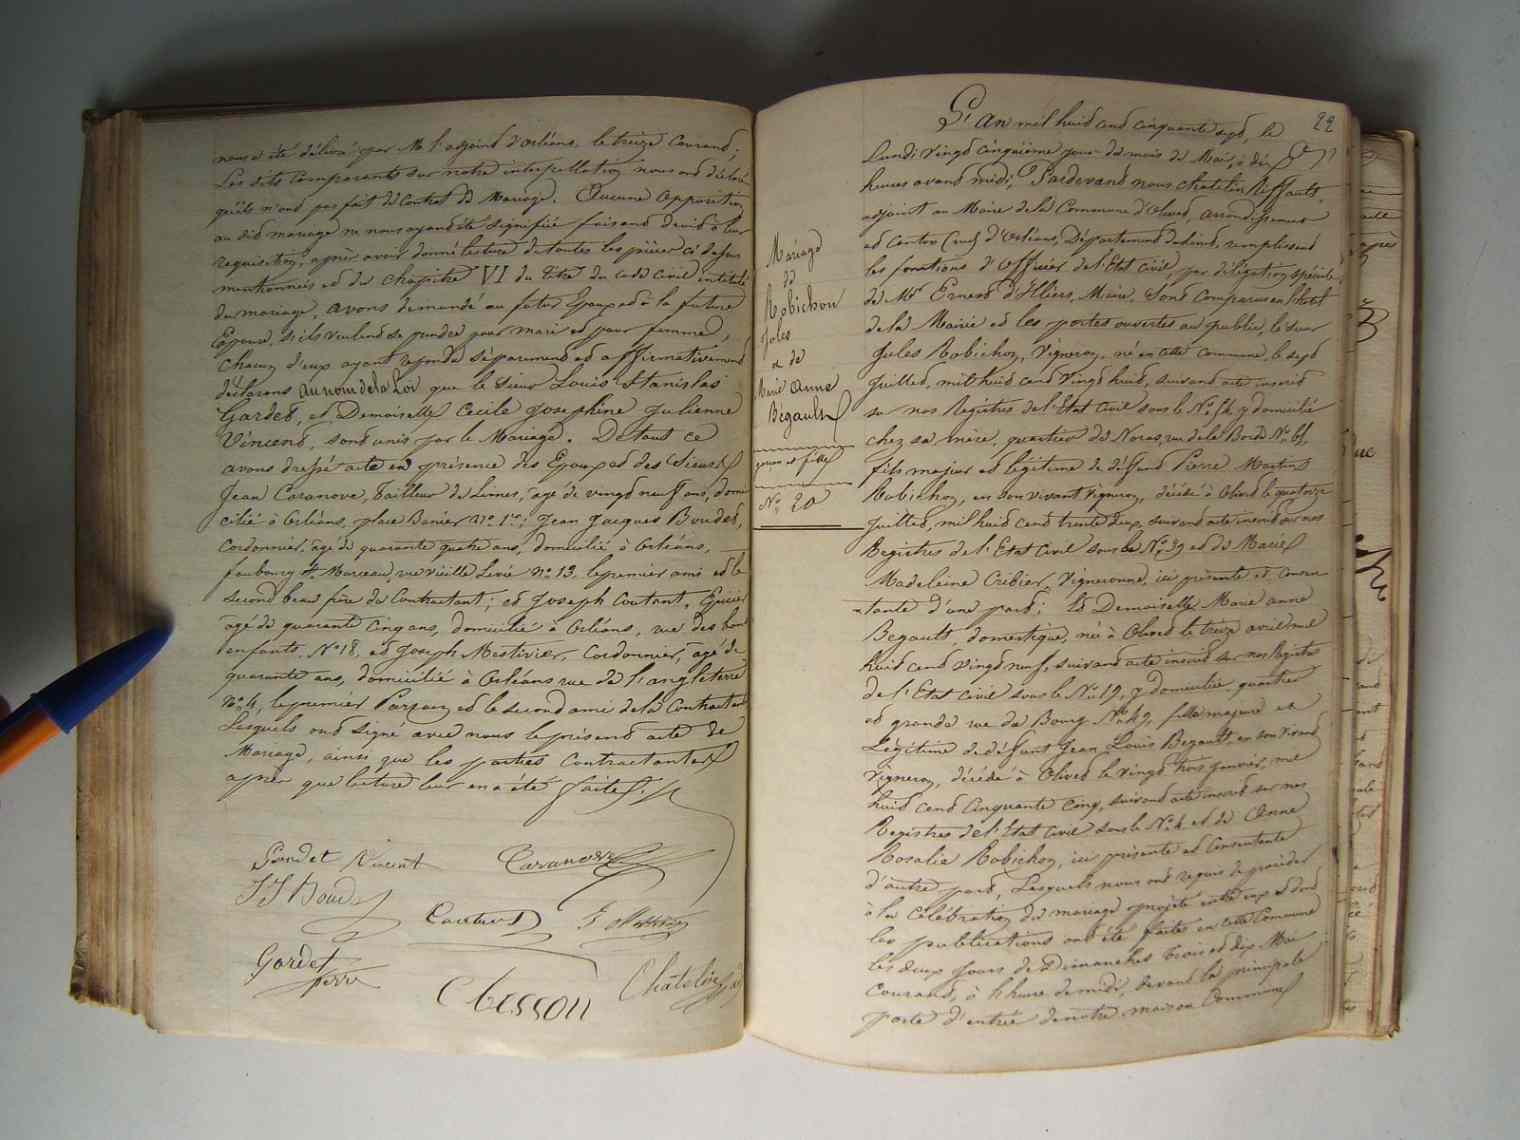 nous a été délivré par Mr l'adjoint d'Orléans, le treize Courant;
Les dits Comparants sur notre interpellation nous ont déclaré
qu'ils n'ont pas fait de Contrat de Mariage. Aucune Opposition
au dit mariage ne nous ayant été signifiée faisant droit à leur
requisition, après avoir donné lecture de toutes les pièces ci dessus
mentionnées et du chapitre VI du titre du code Civil intitulé
du mariage, avons demandé au futur Epoux et à la future
Epouse, s'ils veulent se prendre pour mari et pour femme,
chacun d'eux ayant repondu séparement et affirmativement
déclarons au nom de la Loi que le Sieur Louis Stanislas
Gardet, et Demoiselle Cecile Josephine Julienne
Vincent, sont unis par le Mariage. De tout ce
avons dressé acte en présence des Epoux et des Sieurs
Jean Caranove, tailleur de Limes, agé de vingt neuf ans, domi
cilié à Orléans, place Banier No 1er; Jean Jacques Boudet,
Cordonnier, agé de quarante quatre ans, domicilié à Orléans,
faubourg St Marceau, rue vieille Levée no 13, le premier ami et le
second beau frère du Contractant; et Joseph Coutant, Epicier
agé de quarante cinq ans, domicilié à Orléans, rue des bons
enfants, No 18, et Joseph Mestivier, Cordonnier, agé de
quarante ans, domicilié à Orléans rue de l'angleterre
no 4, le premier Parrain et le second ami de la Contractante
Lesquels ont signé avec nous le présent acte de
Mariage, ainsi que les parties Contractantes
après que lecture leur en a été faite.
Gardet Vincent Caranove
J J Boudet
Coutant
Gardet
père
Cbesson Chatelin
22
L'an mil huit cent cinquante sept, le
Lundi vingt cinquième jour du mois de Mai, à dix
heures avant midi, Pardevant nous Chatelin Riffault,
adjoint au Maire de la Commune d'Olivet, arrondissement
et Canton (sud) d'Orléans, Département du Loiret, remplissant
les fonctions d'officier de l'Etat Civil, par délégation spéciale
de Mr Ernest d'Illiers, Maire, Sont Comparus en l'hotel
de la Mairie et les portes ouvertes au public, le sieur
Jules Robichon, Vigneron, né en cette commune, le sept
Juillet, mil huit cent vingt huit, suivant acte inscrit
sur nos Registres de l'Etat Civil sous le No 54, y domicilié
chez sa mère, quartier du Noras, rue de la Borde No 61,
fils majeur et légitime de défunt Pierre Martin
Robichon, en son vivant Vigneron, décédé à Olivet le quatorze
Juillet, mil huit cent trente deux, suivant acte inscrit sur nos
Registres de l'Etat Civil sous le No 39 et de Marie
Madeleine Cribier, Vigneronne, ici présente et consen
tante d'une part; Et Demoiselle Marie Anne
Begault, domestique, née à Olivet le treize avril mil
huit cent vingt neuf, suivant acte inscrit sur nos Registres
de l'Etat Civil sous le No 19, y domiciliée quartier
et grande rue du Bourg No 49, fille majeure et
Légitime de défunt Jean Louis Begault, en son vivant
Vigneron, décédé à Olivet le vingt trois Janvier, mil
huit cent Cinquante Cinq, suivant acte inscrit sur nos
Registres de l'Etat Civil sous le No 4 et de Anne
Rosalie Robichon, ici présente et Consentante
d'autre part, Lesquels nous ont requis de procéder
à la Célébration du mariage projeté entre eux et dont
les publications ont été faites en cette Commune
les deux jours de Dimanches trois et dix Mai
Courant, à l'heure de midi, devant la principale
porte d'entrée de notre maison Commune
Mariage
de
Robichon
Jules
& de
Marie Anne
Begault
garçon et fille
No 20